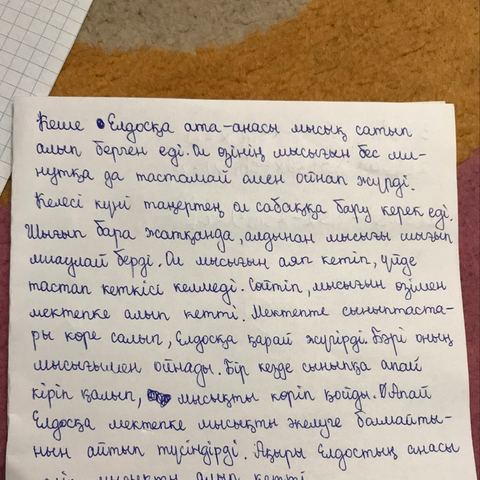 Кеше Елдосқа ата-анасы мысық сатып
алып берген еді. Ол өзінің мысығын бес ми-
нутқа да тастамай онмен ойнап жүрді.
Келесі күні таңертең ол сабаққа бару керек еді.
Шығып бара жатқанда, алдынан мысығы шығып
миаулай берді. Ол мысығын аяп кетіп, үйде
тастап кеткісі келмеді. Сөйтіп, мысығын өзімен
мектепке алып кетті. Мектепте сыныптаста-
ры көре салып, Елдосқа қарай жүгірді. Бәрі оның
мысығымен ойнады. Бір кезде сыныпқа апай
кіріп қалып, мысықты көріп қойды. Апай
Елдосқа мектепке мысықты әкелуге болмайты-
нын айтып түсіндірді. Ақыры Елдостың анасы
алып кетті